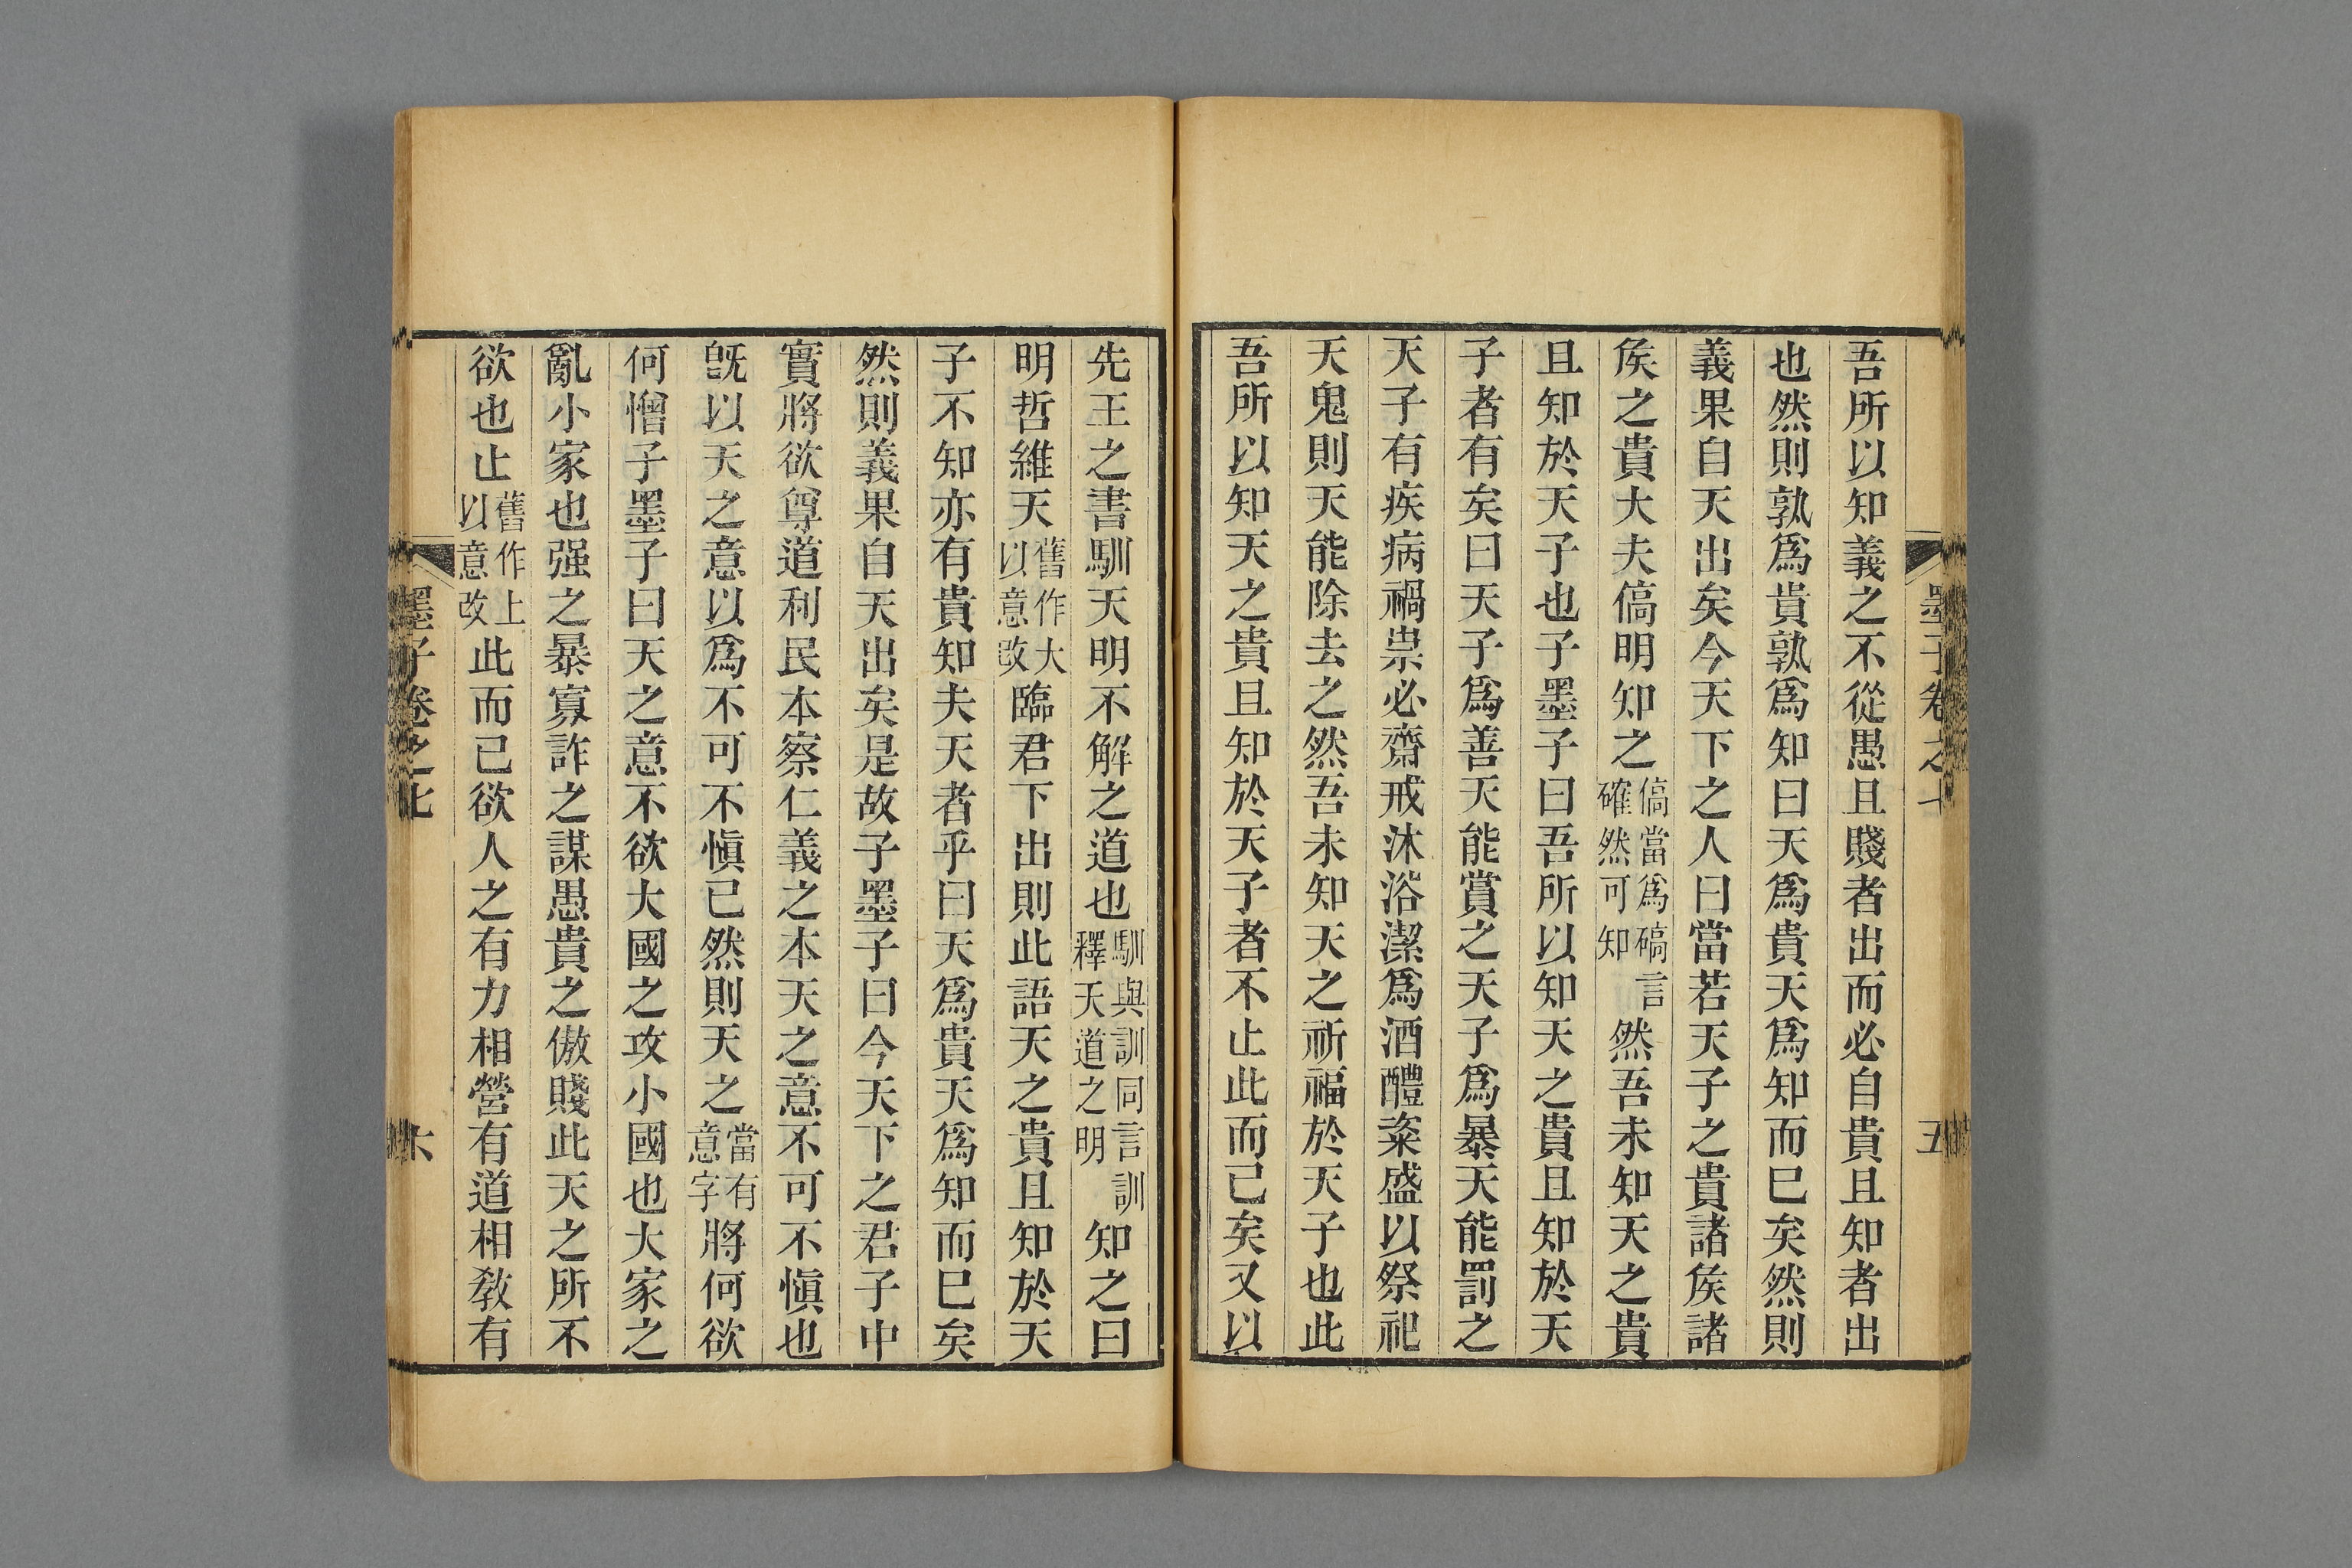 墨子卷之七
五
吾所以知義之不從愚且賤者出而必自貴且知者出
也然則孰爲貴孰爲知曰天爲貴天爲知而巳矣然則
義果自天出矣今天下之人曰當若天子之貴諸矦諸
矦之貴大夫傐明知之傐當爲碻言確然可知然吾未知天之貴
且知於天子也子墨子曰吾所以知天之貴且知於天
子者有矣曰天子爲善天能賞之天子爲暴天能罰之
天子有疾病禍祟必齋戒沐浴潔爲酒醴粢盛以祭祀
天鬼則天能除去之然吾未知天之祈福於天子也此
吾所以知天之貴且知於天子者不止此而己矣又以
先王之書馴天明不解之道也馴與訓同言訓釋天道之明知之曰
明哲維天舊作大以意改臨君下出則此語天之貴且知於天
子不知亦有貴知夫天者乎曰天爲貴天爲知而巳矣
然則義果自天出矣是故子墨子曰今天下之君子中
實將欲尊道利民本察仁義之本天之意不可不愼也
旣以天之意以爲不可不愼已然則天之當有意字將何欲
何憎子墨子曰天之意不欲大國之攻小國也大家之
亂小家也强之暴寡詐之謀愚貴之傲賤此天之所不
欲也止舊作上以意改此而己欲人之有力相營有道相敎有
墨子卷之七
六